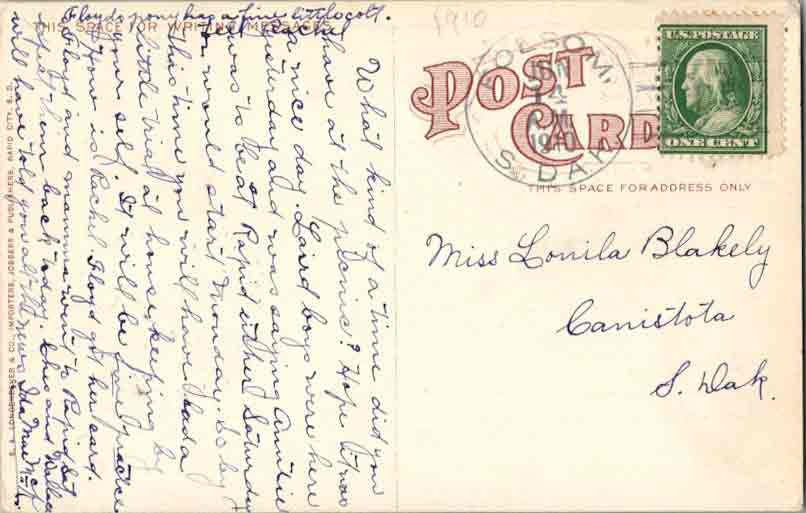 Floyds pony has a fine little colt.
THIS SPACE FOR WRITING MESSAGES
Tell Rachel
What kind of a time did you
have at the picnic? Hope it was
a nice day. Laird boys were here
yesterday and was saying Auntie
was to be at Rapid either Saturday
or would start Monday. So by
this time you will have had a
little trial at housekeeping by
your self. It will be fine practice
How is Rachel Floyd got her card.
Floyd and mamma went to Rapid Sat
expect them back today. Ches and Wallace
will have told you all the news Ida Mae
S. A. LONGENECKER & CO., IMPORTERS, JOBBERS & PUBLISHERS, RAPID CITY, S. D.
1910
POST
CARD
FOLSOM,
14
1910
S. DAK.
U.S. POSTAGE
ONE CENT
THIS SPACE FOR ADDRESS ONLY
Miss Lonila Blakely
Canistota
S. Dak.